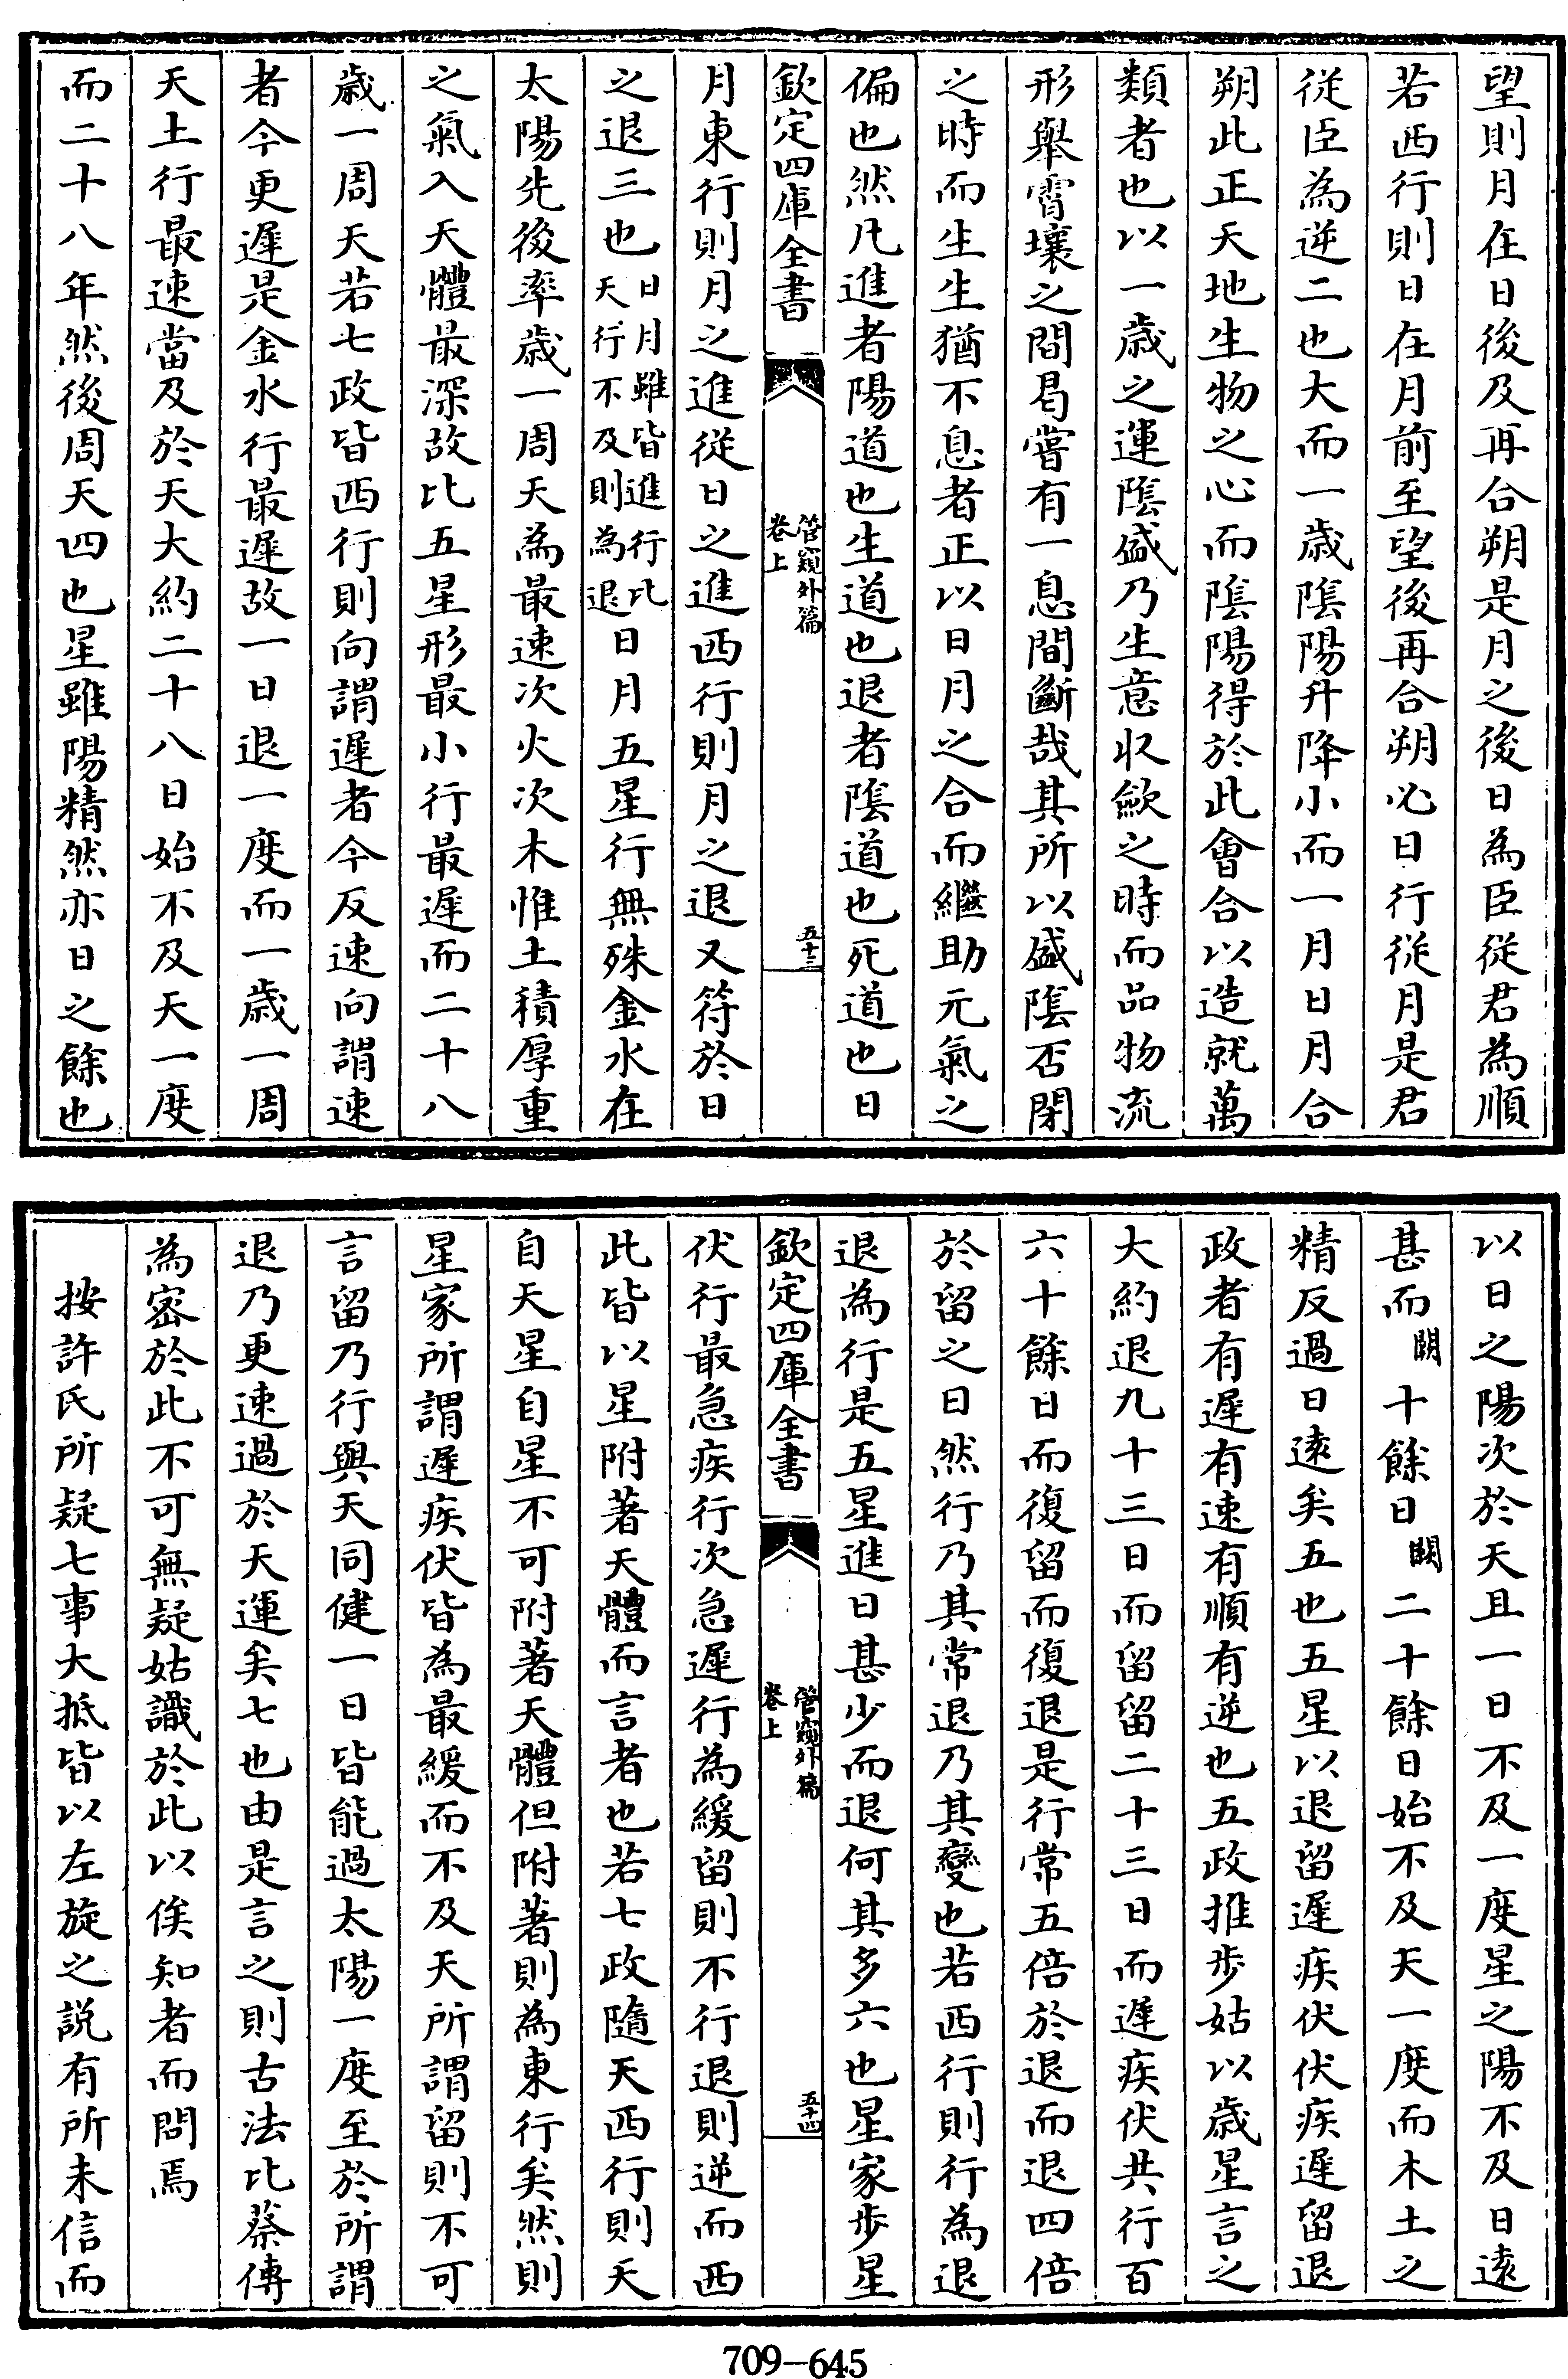 望則月在日後及再合朔是月之後日為臣從君為順
若西行則日在月前至望後再合朔必日行從月是君
從臣為逆二也大而一歲隂陽升降小而一月日月合
朔此正天地生物之心而隂陽得於此會合以造就萬
類者也以一歲之運隂盛乃生意收歛之時而品物流
形舉霄壤之間曷嘗有一息間斷哉其所以盛隂否閉
之時而生生猶不息者正以日月之合而繼助元氣之
偏也然凡進者陽道也生道也退者隂道也死道也日
欽定四庫全書
管窺外篇
卷上
五十三
月東行則月之進從日之進西行則月之退又符於日
之退三也日月雖皆進行比天行不及則為退日月五星行無殊金水在
太陽先後率歲一周天為最速次火次木惟土積厚重
之氣入天體最深故比五星形最小行最遲而二十八
歲一周天若七政皆西行則向謂遲者今反速向謂速
者今更遲是金水行最遲故一日退一度而一歲一周
天土行最速當及於天大約二十八日始不及天一度
而二十八年然後周天四也星雖陽精然亦日之餘也
以日之陽次於天且一日不及一度星之陽不及日逺
甚而闕十餘日闕二十餘日始不及天一度而木土之
精反過日逺矣五也五星以退留遲疾伏伏疾遲留退
政者有遲有速有順有逆也五政推步姑以歲星言之
大約退九十三日而留留二十三日而遲疾伏共行百
六十餘日而復留而復退是行常五倍於退而退四倍
於留之日然行乃其常退乃其變也若西行則行為退
退為行是五星進日甚少而退何其多六也星家步星
欽定四庫全書
管窺外篇
卷上
五十四
伏行最急疾行次急遲行為緩留則不行退則逆而西
此皆以星附著天體而言者也若七政隨天西行則天
自天星自星不可附著天體但附著則為東行矣然則
星家所謂遲疾伏皆為最緩而不及天所謂留則不可
言留乃行與天同健一日皆能過太陽一度至於所謂
退乃更速過於天運矣七也由是言之則古法比蔡傳
為密於此不可無疑姑識於此以俟知者而問焉
按許氏所疑七事大抵皆以左旋之説有所未信而
709—645